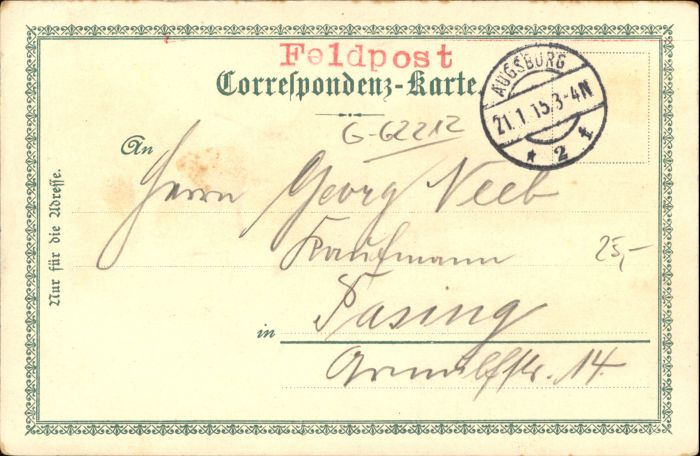 Feldpost
Correspondenz-Karte
AUGSBURG
21.1.15.3-4N
* 2 f
G-62212
An
Herrn Georg Neeb
Kaufmann
25,-
in Pasing
Arnulfstr. 14.
Nur für die Adresse.